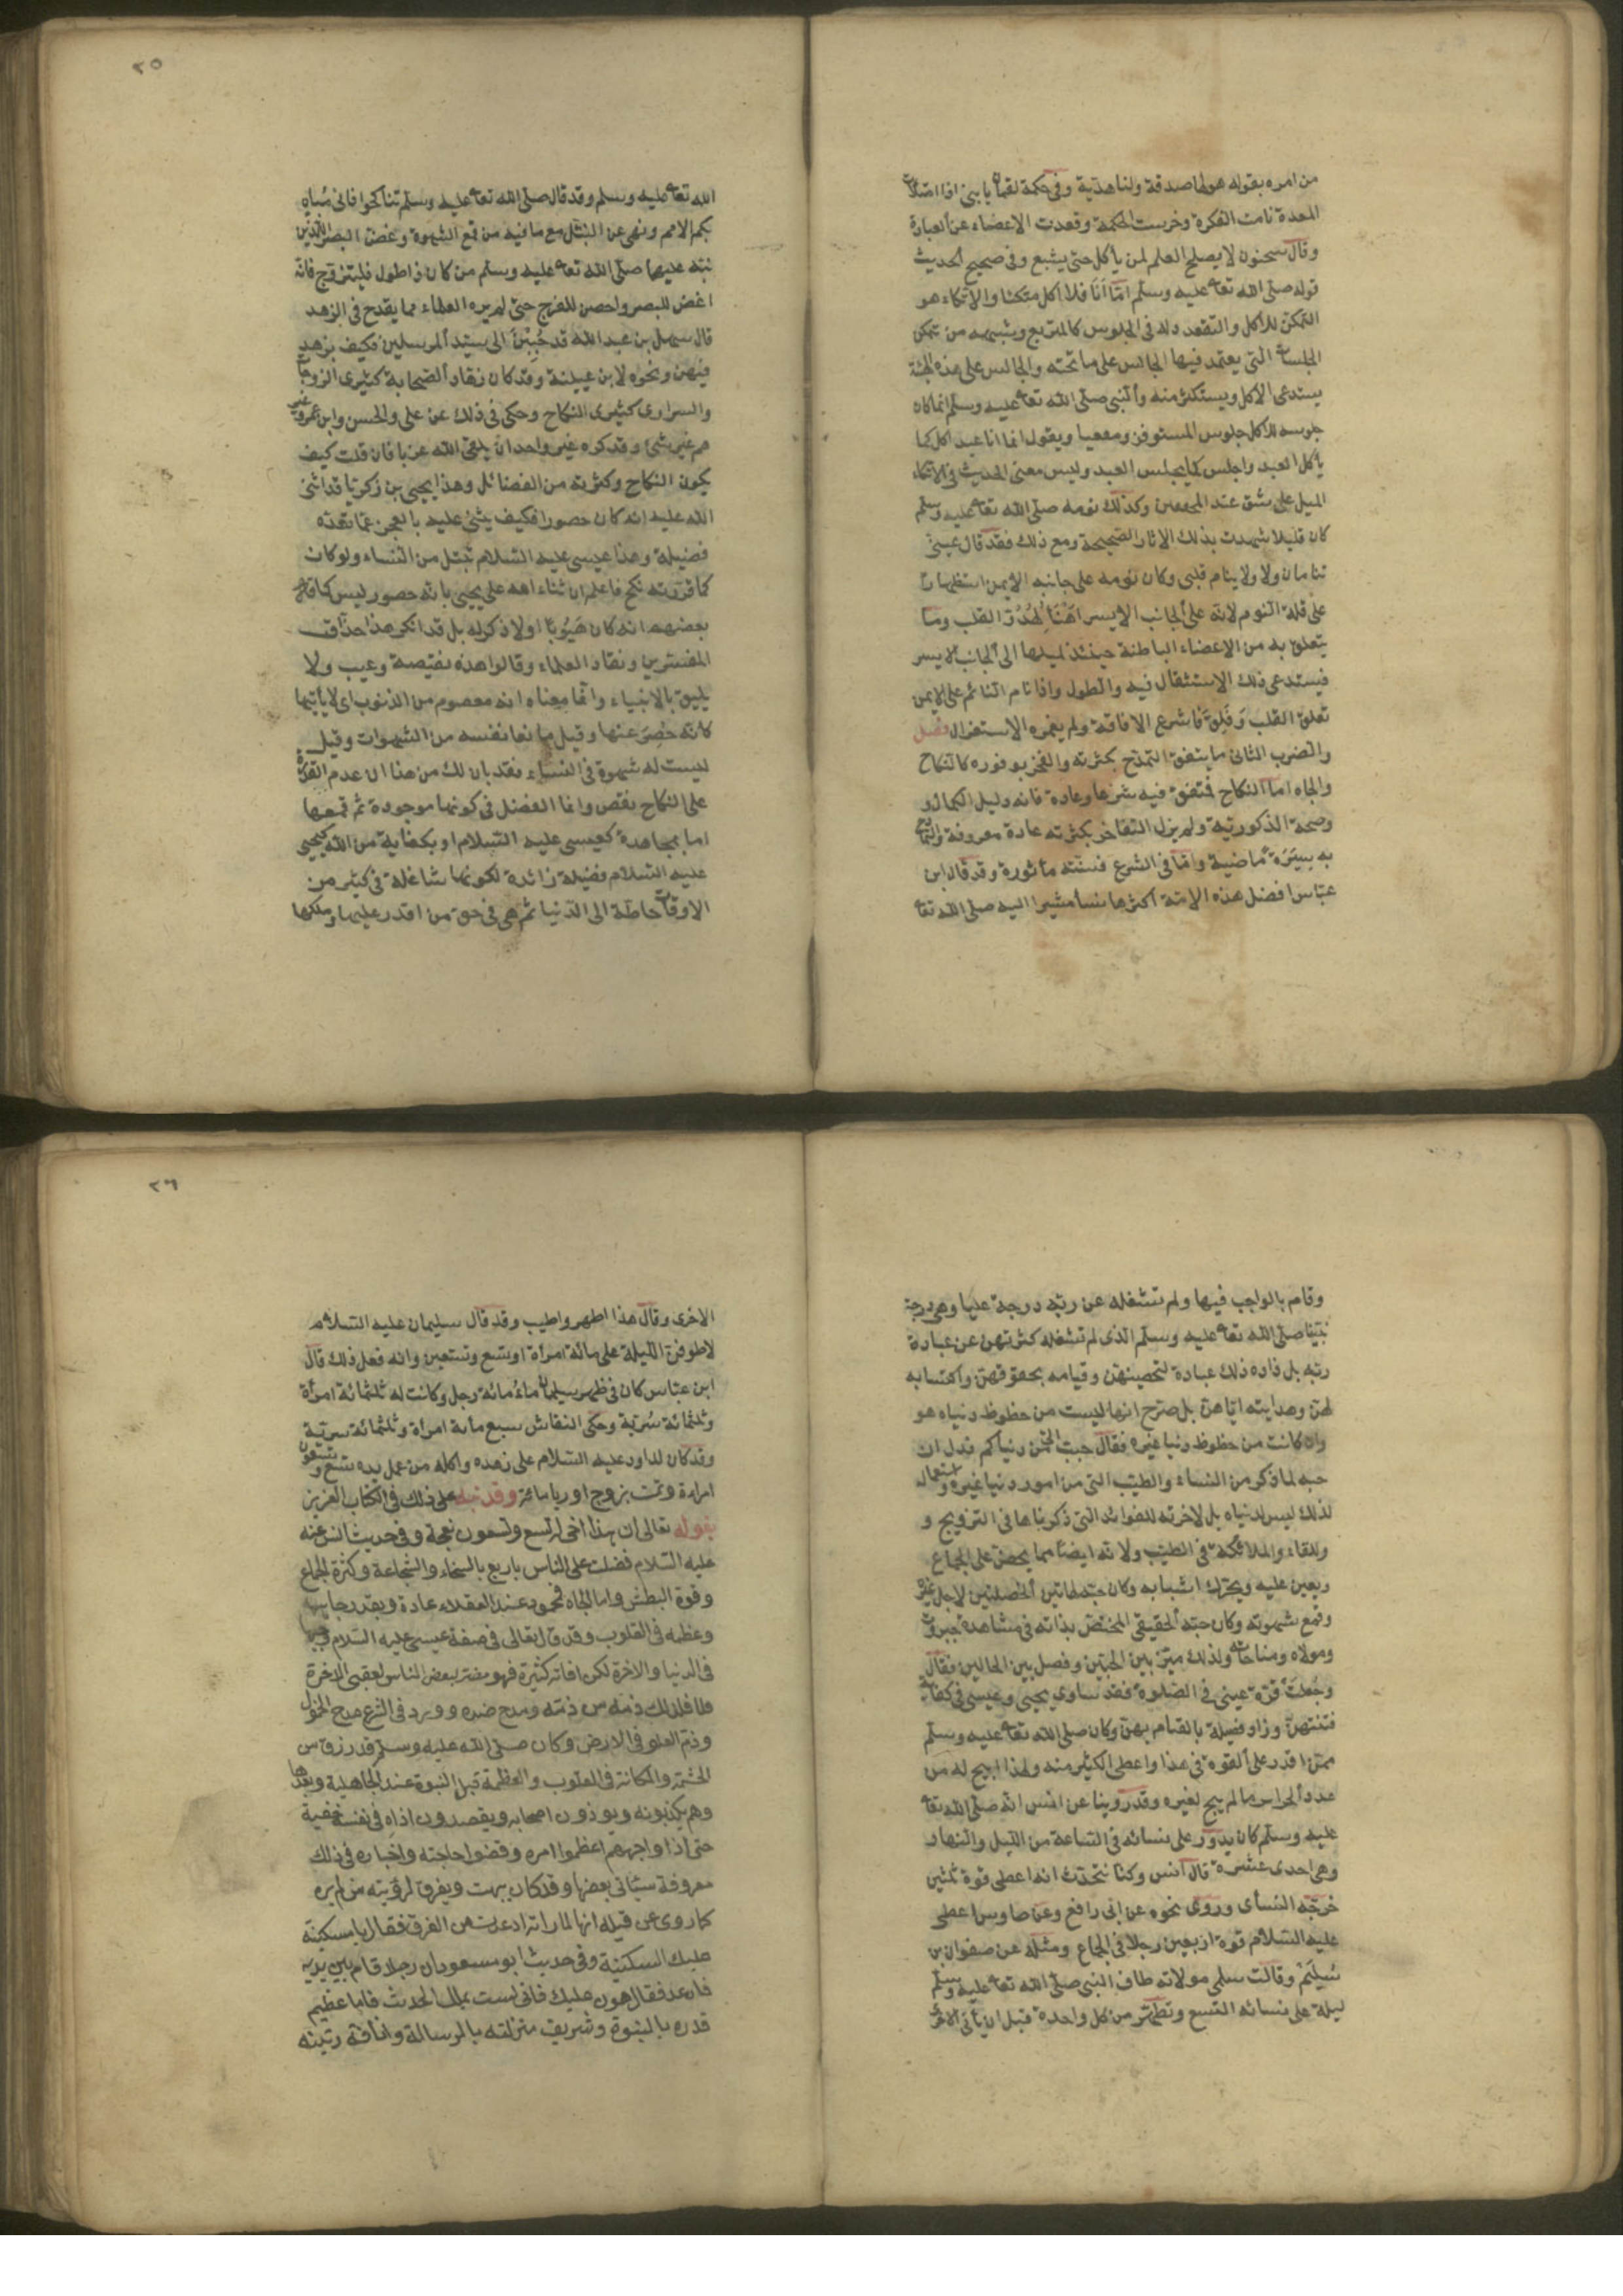 من امره بقوله هو لها صدقة ولنا هدية وفى حكمة لقمان يا بنى اذا امتلات
المعدة نامت الفكرة وخرست الحكمة وقعدت الاعضاء عن العبادة
وقال سحنون لا يصلح العلم لمن ياكل حتى يشبع وفى صحيح الحديث
قوله صلى الله تعا عليه وسلم امّا انَا فلا اكل متكئا والاتكاء هو
التمكن للاكل والتقعدد له فى الجلوس كالمتربع وشبهه من تمكن
الجلسات التى يعتمد فيها الجالس على ما تحته والجالس على هذه الهيئة
يستدعى الاكل ويستكثر منه والنبى صلى الله تعا عليه وسلم انما كان
جلوسه للاكل جلوس المستوفز ومقعيا ويقول انما انا عبد اكل كما
ياكل العبد واجلس كما يجلس العبد وليس معنى الحديث فى الاتكاء
الميل على شق عند المحققين وكذلك نومه صلى الله تعا عليه وسلم
كان قليلا شهدت بذلك الاثار الصحيحة ومع ذلك فقد قال عينىّ
تنامان ولا ينام قلبى وكان نومه على جانبه الايمن استظهارا
على قلة النوم لانه على الجانب الايسر اهْنَأ لهُدُوّ القلب وما
يتعلق به من الاعضاء الباطنة حينئذ لميلها الى الجانب الايسر
فيستدعى ذلك الاستثقال فيه والطول واذا نام النائم على الايمن
تعلق القلب وَقَلِقَ فاسرع الافاقة ولم يغمره الاستغراق فصل
والضرب الثانى ما يتفق التمدح بكثرته والفخر بوفوره كالنكاح
والجاه امّا النكاح فمتفق فيه شرعا وعادة فانه دليل الكمال و
وصحة الذكورية ولم يزل التفاخر بكثرته عادة معروفة والتمادح
به سيرَة ماضية وامّا فى الشرع فسنّة مأثورة وقد قال ابن
عبّاس افضل هذه الامّة اكثرها نسأ مشيرا اليه صلى الله تعا
٢٥
الله تعا عليه وسلم وقد قال صلى الله تعا عليه وسلم تناكحوا فانى مُباهٍ
بكم الامم ونهى عن التبتّل مع ما فيه من قمع الشهوة وغضّ البصر اللذين
نبّه عليهما صلى الله تعا عليه وسلم من كان ذا طول فليتزوّج فانّه
اغض للبصر واحصن للفرج حتى لم يره العلماء مما يقدح فى الزهد
قال سهل بن عبد الله قد حُبّبْنَ الى سيّد المرسلين فكيف يزهد
فيهن ونحوه لابن عيينة وقد كان زهّاد الصّحابة كثيرى الزوجات
والسرارى كثيرى النكاح وحكى فى ذلك عن على والحسن وابن عمر وغير
هم غير شئ وقد كره غير واحد انْ يلقى الله عزبا فان قلت كيف
يكون النكاح وكثرته من الفضائل وهذا يحيى بن زكريّا قد اثنى
الله عليه انه كان حصورا فكيف يثنى عليه بالعجز عمّا تعدّه
فضيلة وهذا عيسى عليه السّلام تبتل من النساء ولو كان
كما قرّرته لنكح فاعلم ان ثناء الله على يحيى بانه حصور ليس كما قال
بعضهم انه كان هَيُوبًا او لا ذكر له بل قد انكر هذا حذّاق
المفسّرين ونقّاد العلماء وقالوا هذه نقيصة وعيب ولا
يليق بالانبياء وانّما معناه انه معصوم من الذنوب اى لا يأتيها
كانّه حُصِرَ عنها وقيل مانعا نفسه من الشهوات وقيل
ليست له شهوة فى النساء فقد بان لك من هذا ان عدم القدرة
على النكاح نقص وانما الفضل فى كونها موجودة ثم قمعها
اما بمجاهدة كعيسى عليه السّلام او بكفاية من الله كيحيى
عليه السلام فضيلة زائدة لكونها شاغلة فى كثير من
الاوقات حاطّة الى الدّنيا ثم هى فى حق من اقدر عليها وملكها
وقام بالواجب فيها ولم تشغله عن ربّه درجة عليا وهى درجة
نبيّنا صلى الله تعا عليه وسلم الذى لم تشغله كثرتهن عن عبادة
ربّه بل زاده ذلك عبادة لتحصينهنّ وقيامه بحقوقهنّ واكتسابه
لهنّ وهدايته ايّاهنّ بل صرّح انها ليست من حظوظ دنياه هو
وان كانت من حظوظ دنيا غيره فقال حبب الىّ من دنياكم فدل ان
حبه لما ذكر من النساء والطيب التى من امور دنيا غيره واستعماله
لذلك ليس لدنياه بل لاخرته للفوائد التى ذكرناها فى التزويج و
ولقاء والملائكة فى الطيب ولانّه ايضًا مما يحضّ على الجماع
ويعين عليه ويحرّك اسبابه وكان حبه لهاتين الخصلتين لاجل غيره
وقمع شهوته وكان حبّه الحقيقى المختصّ بذاته فى مشاهدة جبروت
ومولاه ومناجاته ولذلك ميّز بين الحبّين وفصل بين الحالين فقال
وجُعلتْ قرّة عينى فى الصّلوة فقد ساوى يحيى وعيسى فى كفاية
فتنتهنّ وزاد فضيلة بالقيام بهنّ وكان صلى الله تعا عليه وسلم
ممّن اقدر على القوة فى هذا واعطى الكثير منه ولهذا ابيح له من
عدد الحرائر ما لم يبح لغيره وقد روينا عن انس انّه صلى الله تعا
عليه وسلم كان يدوّر على نسائه فى السّاعة من الليل والنهار
وهى احدى عشرة قال انس وكنّا نتحدّث انه اعطى قوة ثلثين
خرّجه النسأى وروى نحوه عن ابى رافع وعن طاوس اعطى
عليه السّلام قوة اربعين رجلا فى الجماع ومثله عن صفوان بن
سُلَيْم وقالت سلمى مولاته طاف النبى صلى الله تعا عليه وسلم
ليلة على نسائه التسع وتطهّر من كل واحدة قبل ان يأتى الاخرى
٢٦
الاخرى وقال هذا اطهر واطيب وقد قال سليمان عليه السّلام
لاطوفنّ الليلة على مائة امرأة او تسع وتسعين وانه فعل ذلك قال
ابن عبّاس كان فى ظهر سليمان ماءُ مائة رجل وكانت له ثلثمائة امرأة
وثلثمائة سُرّية وحكى النقاش سبع مأية امرأة وثلثمائة سرّية
وقد كان لداود عليه السّلام على زهده واكله من عمل يده تسع وتسعون
امراءة وتمت بزوج اوريا مائة وقد نبّه على ذلك فى الكتاب العزيز
بقوله تعالى ان هذا اخى له تسع وتسعون نعجة وفى حديث انس عنه
عليه السّلام فضلت على الناس باربع بالسخاء والشجاعة وكثرة الجماع
وقوة البطش واما الجاه فمحمود عند العقلاء عادة وبقدر جاهه
وعظمه فى القلوب وقد قال تعالى فى صفة عيسى عليه السّلام وجيها
فى الدنيا والاخرة لكن افاته كثيرة فهو مضر لبعض الناس لعقبى الاخرة
فلذلك ذمّه من ذمّه ومدح ضده وورد فى الشرع مدح الخمول
وذمّ العلو فى الارض وكان صلى الله عليه وسلم قد رزق من
الحشمة والمكانة فى القلوب والعظمة قبل النبوة عند الجاهلية وبعدها
وهم يكذبونه ويوذون اصحابه ويقصدون اذاه فى نفسه خفية
حتى اذا واجههم اعظموا امره وقضوا حاجته واخباره فى ذلك
معروفة سيأتى بعضها وقد كان يبهت ويفرق لرؤيته من لم يره
كما روى عن قيلة انها لما راته ارعدت من الفرق فقال يا مسكينة
عليك السكينة وفى حديث ابو مسعود ان رجلا قام بين يديه
فارعد فقال هون عليك فانى لست بملك الحديث فاما عظيم
قدره بالنبوة وشريف منزلته بالرسالة وانافة رتبته